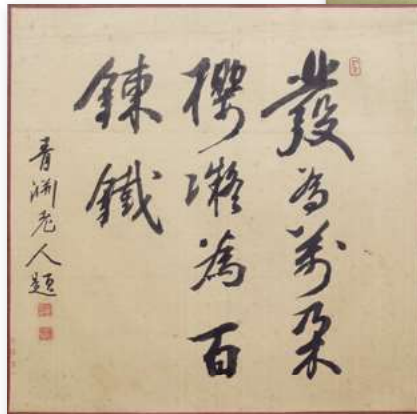 發為萬朶
櫻凝為百
錬鐵
青淵老人題